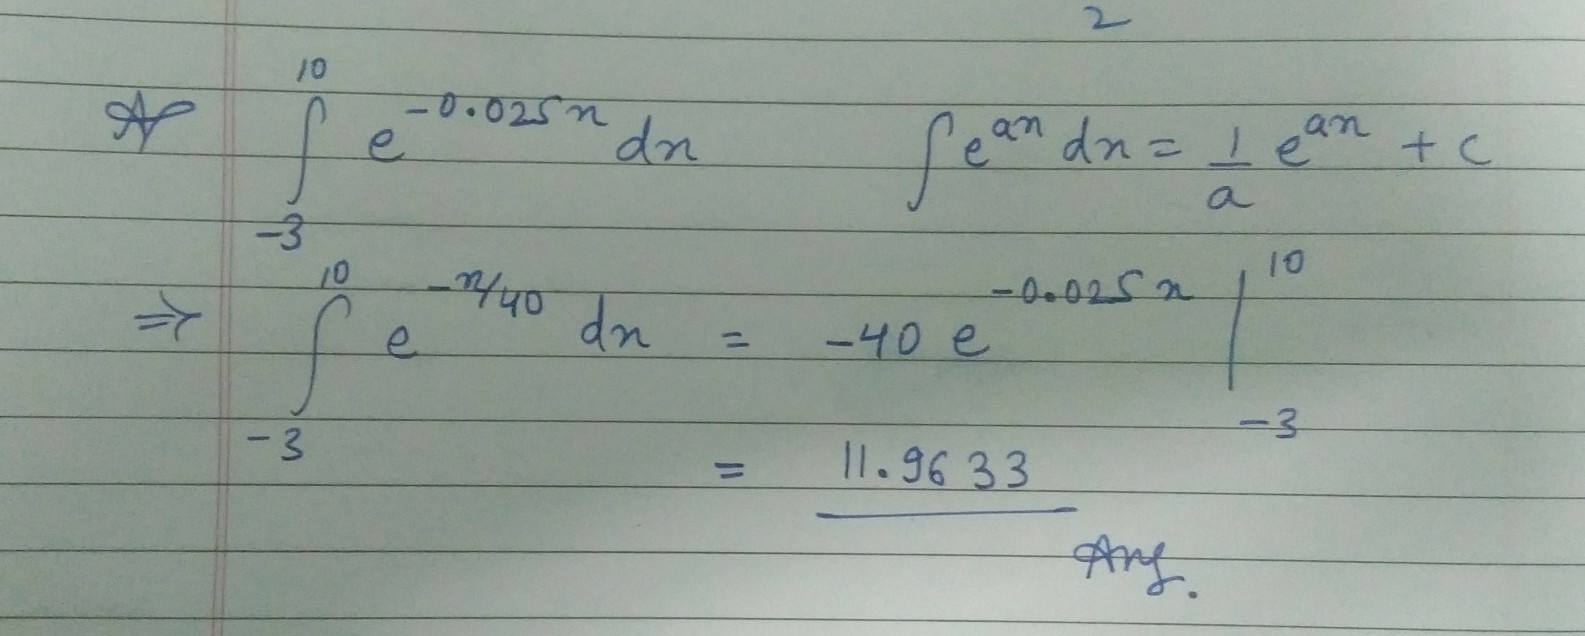 2
A ∫_{-3}^{10} e^{-0.025x} dx ∫e^{ax} dx = 1/a e^{ax} + c
⇒ ∫_{-3}^{10} e^{-x/40} dx = -40 e^{-0.025x} |_{-3}^{10}
= 11.9633
Ans.